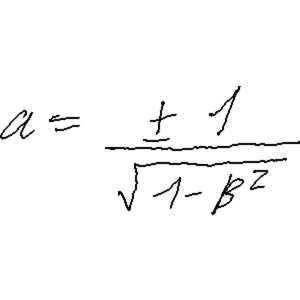 a = \frac{\pm 1}{\sqrt{1 - \beta^2}}